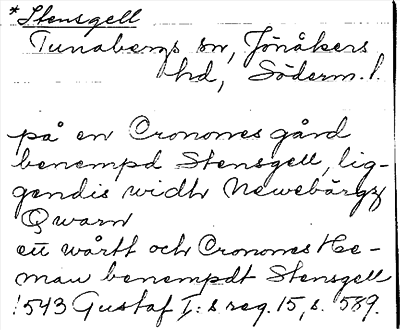 *Stensgell
Tunabergs sn, Jönåkers
hd, Söderm. l.
på en Cronones gård
benempd Stensgell, lig-
gendis widh Newebärgz
Qwarn
ett wårtt och Cronones He-
man benempdt Stensgell
1543 Gustaf I:s reg. 15, s. 589.